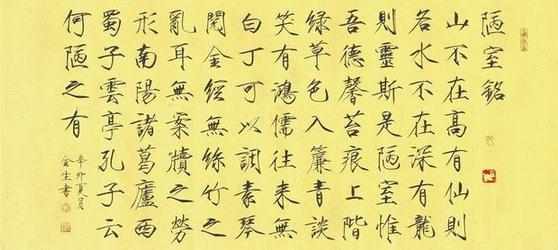 陋室銘
山不在高有仙則
名水不在深有龍
則靈斯是陋室惟
吾德馨苔痕上階
綠草色入簾青談
笑有鴻儒往来無
白丁可以調素琴
閱金經無絲竹之
亂耳無案牘之勞
形南陽諸葛廬西
蜀子雲亭孔子云
何陋之有
辛卯夏月
金生書